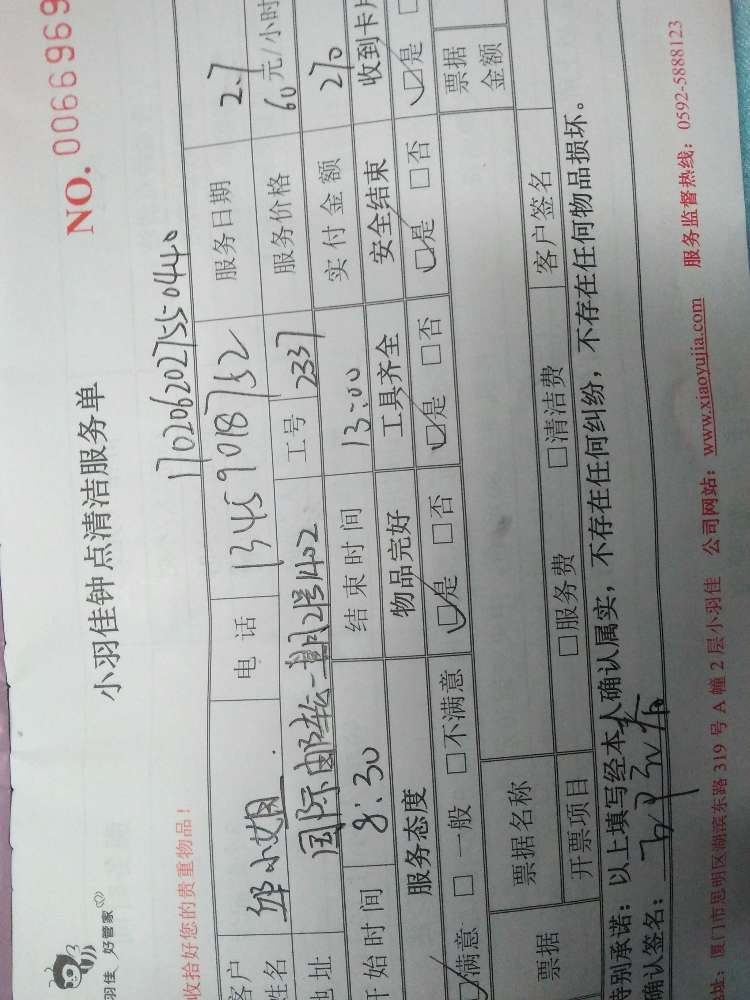 羽佳 好管家
小羽佳钟点清洁服务单
NO. 0066969
收拾好您的贵重物品!
17020620275504440
客户姓名 邹小姐 电话 13459018752 服务日期 2.7
地址 国际邮轮一期2号1402 工号 2337 服务价格 60元/小时
开始时间 8:30 结束时间 13:00 实付金额 270
服务态度 物品完好 工具齐全 安全结束 收到卡片
满意 □一般 □不满意 □是 □否 □是 □否 □是 □否 □是
票据 票据名称 票据金额
开票项目 □服务费 □清洁费 客户签名
特别承诺:以上填写经本人确认属实,不存在任何纠纷,不存在任何物品损坏。
确认签名:
地址:厦门市思明区湖滨东路 319 号 A 幢 2 层小羽佳 公司网站:www.xiaoyujia.com 服务监督热线:0592-5888123